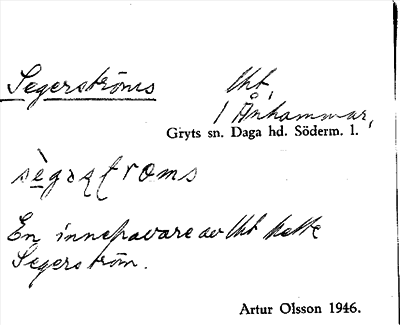 Segerströms tht,
1 Ånhammar,
Gryts sn. Daga hd. Söderm. l.
sègəʂʈroms
En innehavare av tht hette
Segerström.
Artur Olsson 1946.